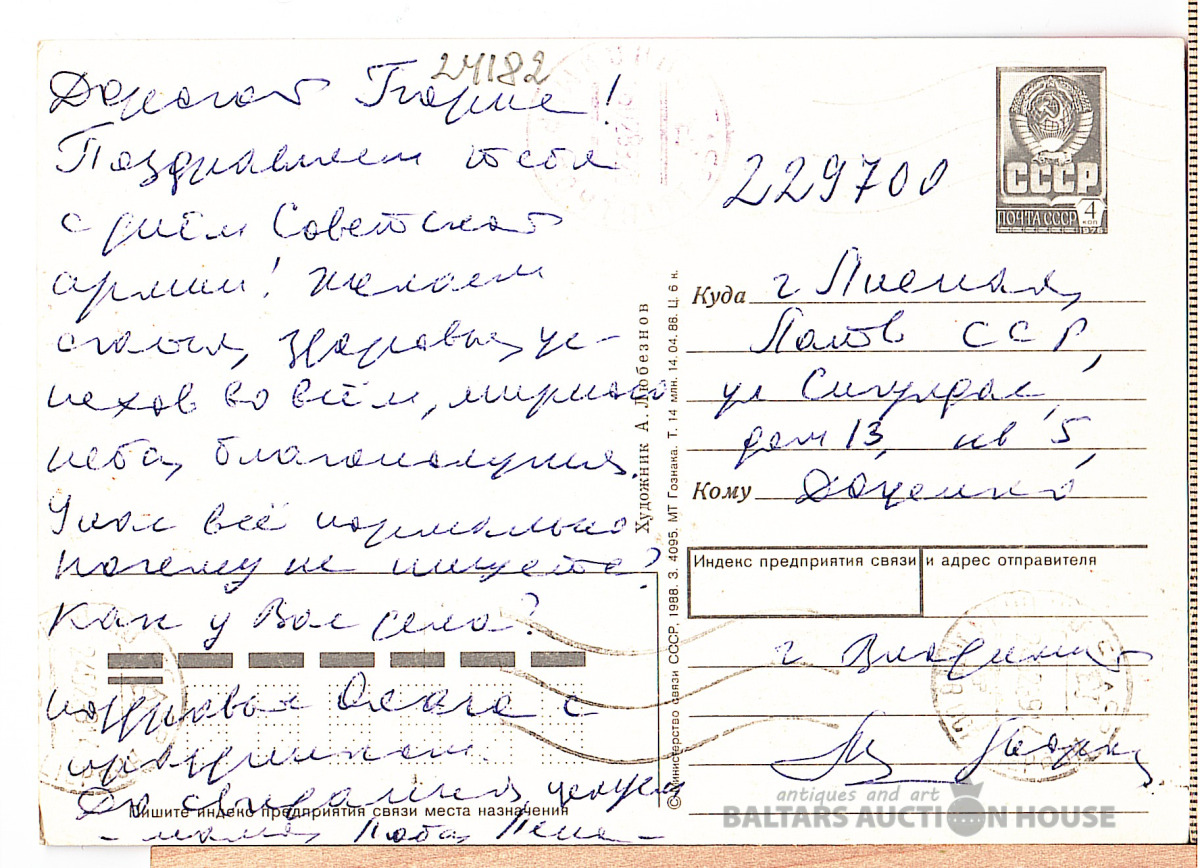 24182
Дорогой !
Поздравляем тебя
с днём Советской
армии! Желаем
счастья, здоровья, ус-
пехов во всём, мирного
неба, благополучия.
У нас всё нормально
Почему не пишете?
Как у Вас дела?
поздравь с
праздником
До свидания, целуем
- мама,
Пишите индекс предприятия связи места назначения
Художник А. Любезнов
© Министерство связи СССР, 1988. З. 4095. МТ Гознака. Т. 14 млн. 14.04.88. Ц. 6 к.
СССР
ПОЧТА СССР 4 КОП
1976
229700
Куда г Лиепая,
Латв ССР,
ул Сигулдас,
дом 13, кв 5
Кому Доценко
Индекс предприятия связи и адрес отправителя
г
antiques and art
BALTARS AUCTION HOUSE